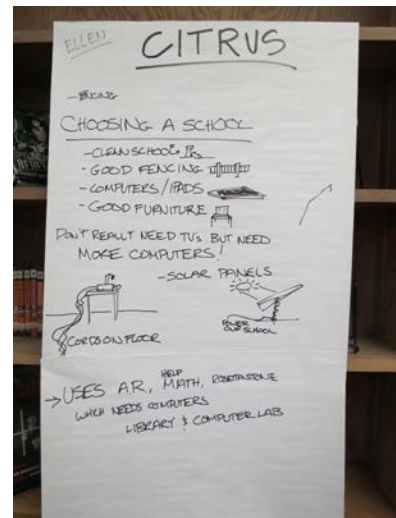 ELLEN
CITRUS
CHOOSING A SCHOOL
- CLEAN SCHOOL
- GOOD FENCING
- COMPUTERS/IPADS
- GOOD FURNITURE
DON'T REALLY NEED TVs BUT NEED
MORE COMPUTERS!
- SOLAR PANELS
POWER
OUR SCHOOL
CORDS ON FLOOR
HELP
→ USES A.R., MATH, ROSETTA STONE
WHICH NEEDS COMPUTERS
LIBRARY & COMPUTER LAB